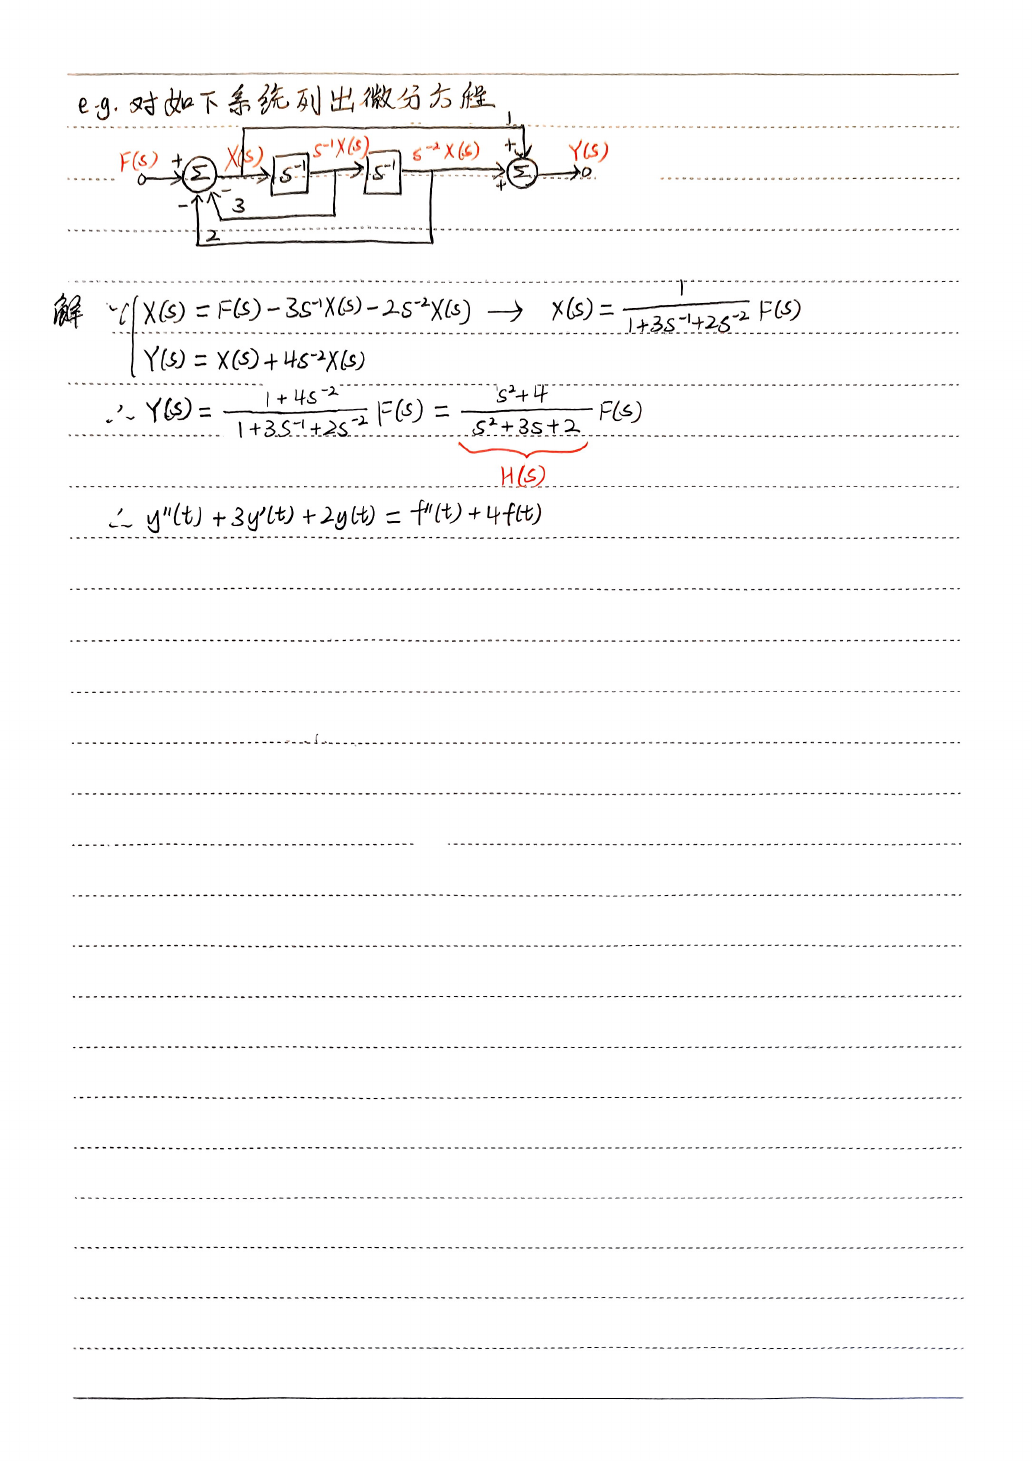 e.g. 对如下系统列出微分方程
1
F(s) + Σ X(s) s⁻¹ s⁻¹X(s) s⁻¹ s⁻²X(s) + + Σ Y(s)
− − 3
2
解 ∵ { X(s) = F(s) − 3s⁻¹X(s) − 2s⁻²X(s) → X(s) = 1/(1+3s⁻¹+2s⁻²) F(s)
Y(s) = X(s) + 4s⁻²X(s)
∴ Y(s) = (1+4s⁻²)/(1+3s⁻¹+2s⁻²) F(s) = (s²+4)/(s²+3s+2) F(s)
H(s)
∴ y''(t) + 3y'(t) + 2y(t) = f''(t) + 4f(t)